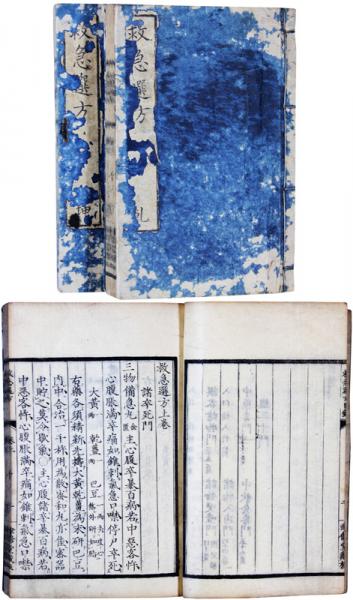 救急選方
救急選方
救急選方上卷
諸卒死門
三物備急丸 金匱 主心腹諸卒暴百病若中惡客忤
心腹脹滿卒痛如錐刺氣急口噤停尸卒死
大黃 一兩 乾薑 一兩 巴豆 一兩去皮心熬外研如脂
右藥各須精新先擣大黃乾薑為末研巴豆
內中合治一千杵用為散蜜和丸亦佳密器
中貯之莫令歇氣主心腹諸卒暴百病若
中惡客忤心腹脹滿卒痛如錐刺氣急口噤